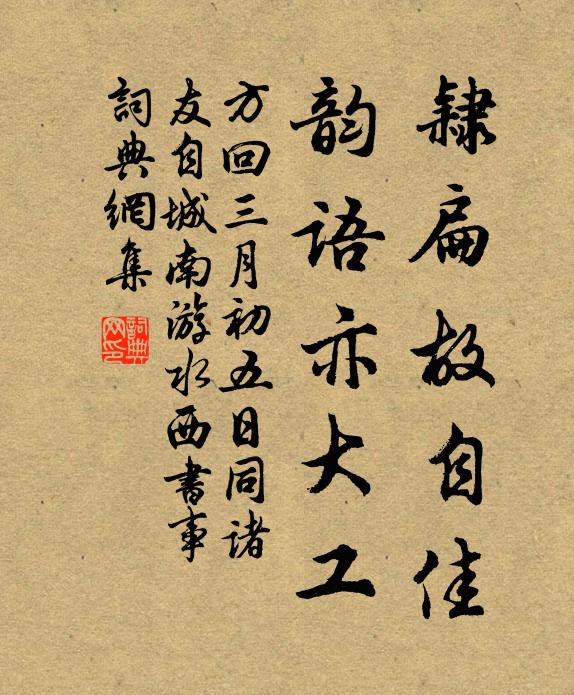 隸扁故自佳
韵語亦大工
方回三月初五日同諸
友自城南游水西書事
詞典網集
詞典网印